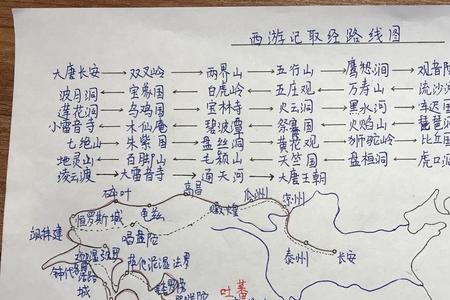 西游记取经路线图
大唐长安 → 双叉岭 → 两界山 → 五行山 → 鹰愁涧 → 观音院
波月洞 ← 宝象国 ← 白虎岭 ← 五庄观 ← 万寿山 ← 流沙河
莲花洞 → 乌鸡国 → 宝林寺 → 火云洞 → 黑水河 → 车迟国
小雷音寺 ← 木仙庵 ← 碧波潭 ← 祭赛国 ← 火焰山 ← 琵琶洞
七绝山 → 朱紫国 → 盘丝洞 → 黄花观 → 狮驼岭 → 比丘国
地灵山 ← 百脚山 ← 毛颖山 ← 天竺国 ← 盘桓洞 ← 虎口洞
凌云渡 → 大雷音寺 → 通天河 → 大唐王朝
碎叶
高昌
瓜州
凉州
敦煌
怛罗斯城
龟兹
飒林建
唱盘陀
秦州
长安
钟代
城
叶蕃